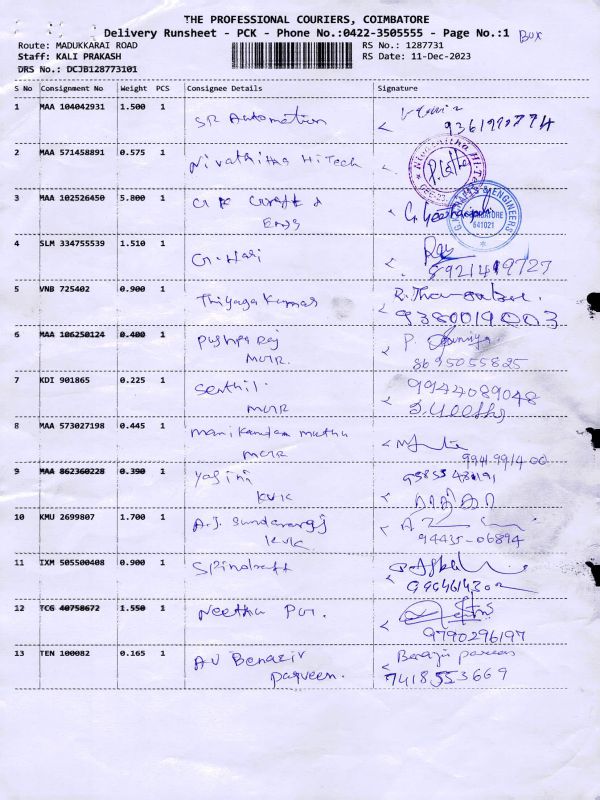 THE PROFESSIONAL COURIERS, COIMBATORE
Delivery Runsheet - PCK - Phone No.:0422-3505555 - Page No.:1 Box
Route: MADUKKARAI ROAD
Staff: KALI PRAKASH
DRS No.: DCJB128773101
RS No.: 1287731
RS Date: 11-Dec-2023
S No Consignment No Weight PCS Consignee Details Signature
1 MAA 104042931 1.500 1 SR Automation
2 MAA 571458891 0.575 1 Nivathitha HiTech
3 MAA 102526450 5.800 1
Engs
641021
4 SLM 334755539 1.510 1 G. Hari
8921419727
5 VNB 725402 0.900 1 Thiyaga Kumar
9380019003
6 MAA 106250124 0.400 1 Pushpa Raj
MCTR.
8695055825
7 KDI 901865 0.225 1 Senthil. 9944089048
MCTR
8 MAA 573027198 0.445 1 Manikandan Muthu
MCTR
9 MAA 862360228 0.390 1 Yasini
KVK
10 KMU 2699807 1.700 1 A.J. Sundararaj
KVK 94435-06894
11 IXM 505500408 0.900 1 Spindraft
12 TCG 40758672 1.550 1 Neethu
9790296197
13 TEN 100082 0.165 1 AU Benazir Benazir parveen
Parveen. 7418553669